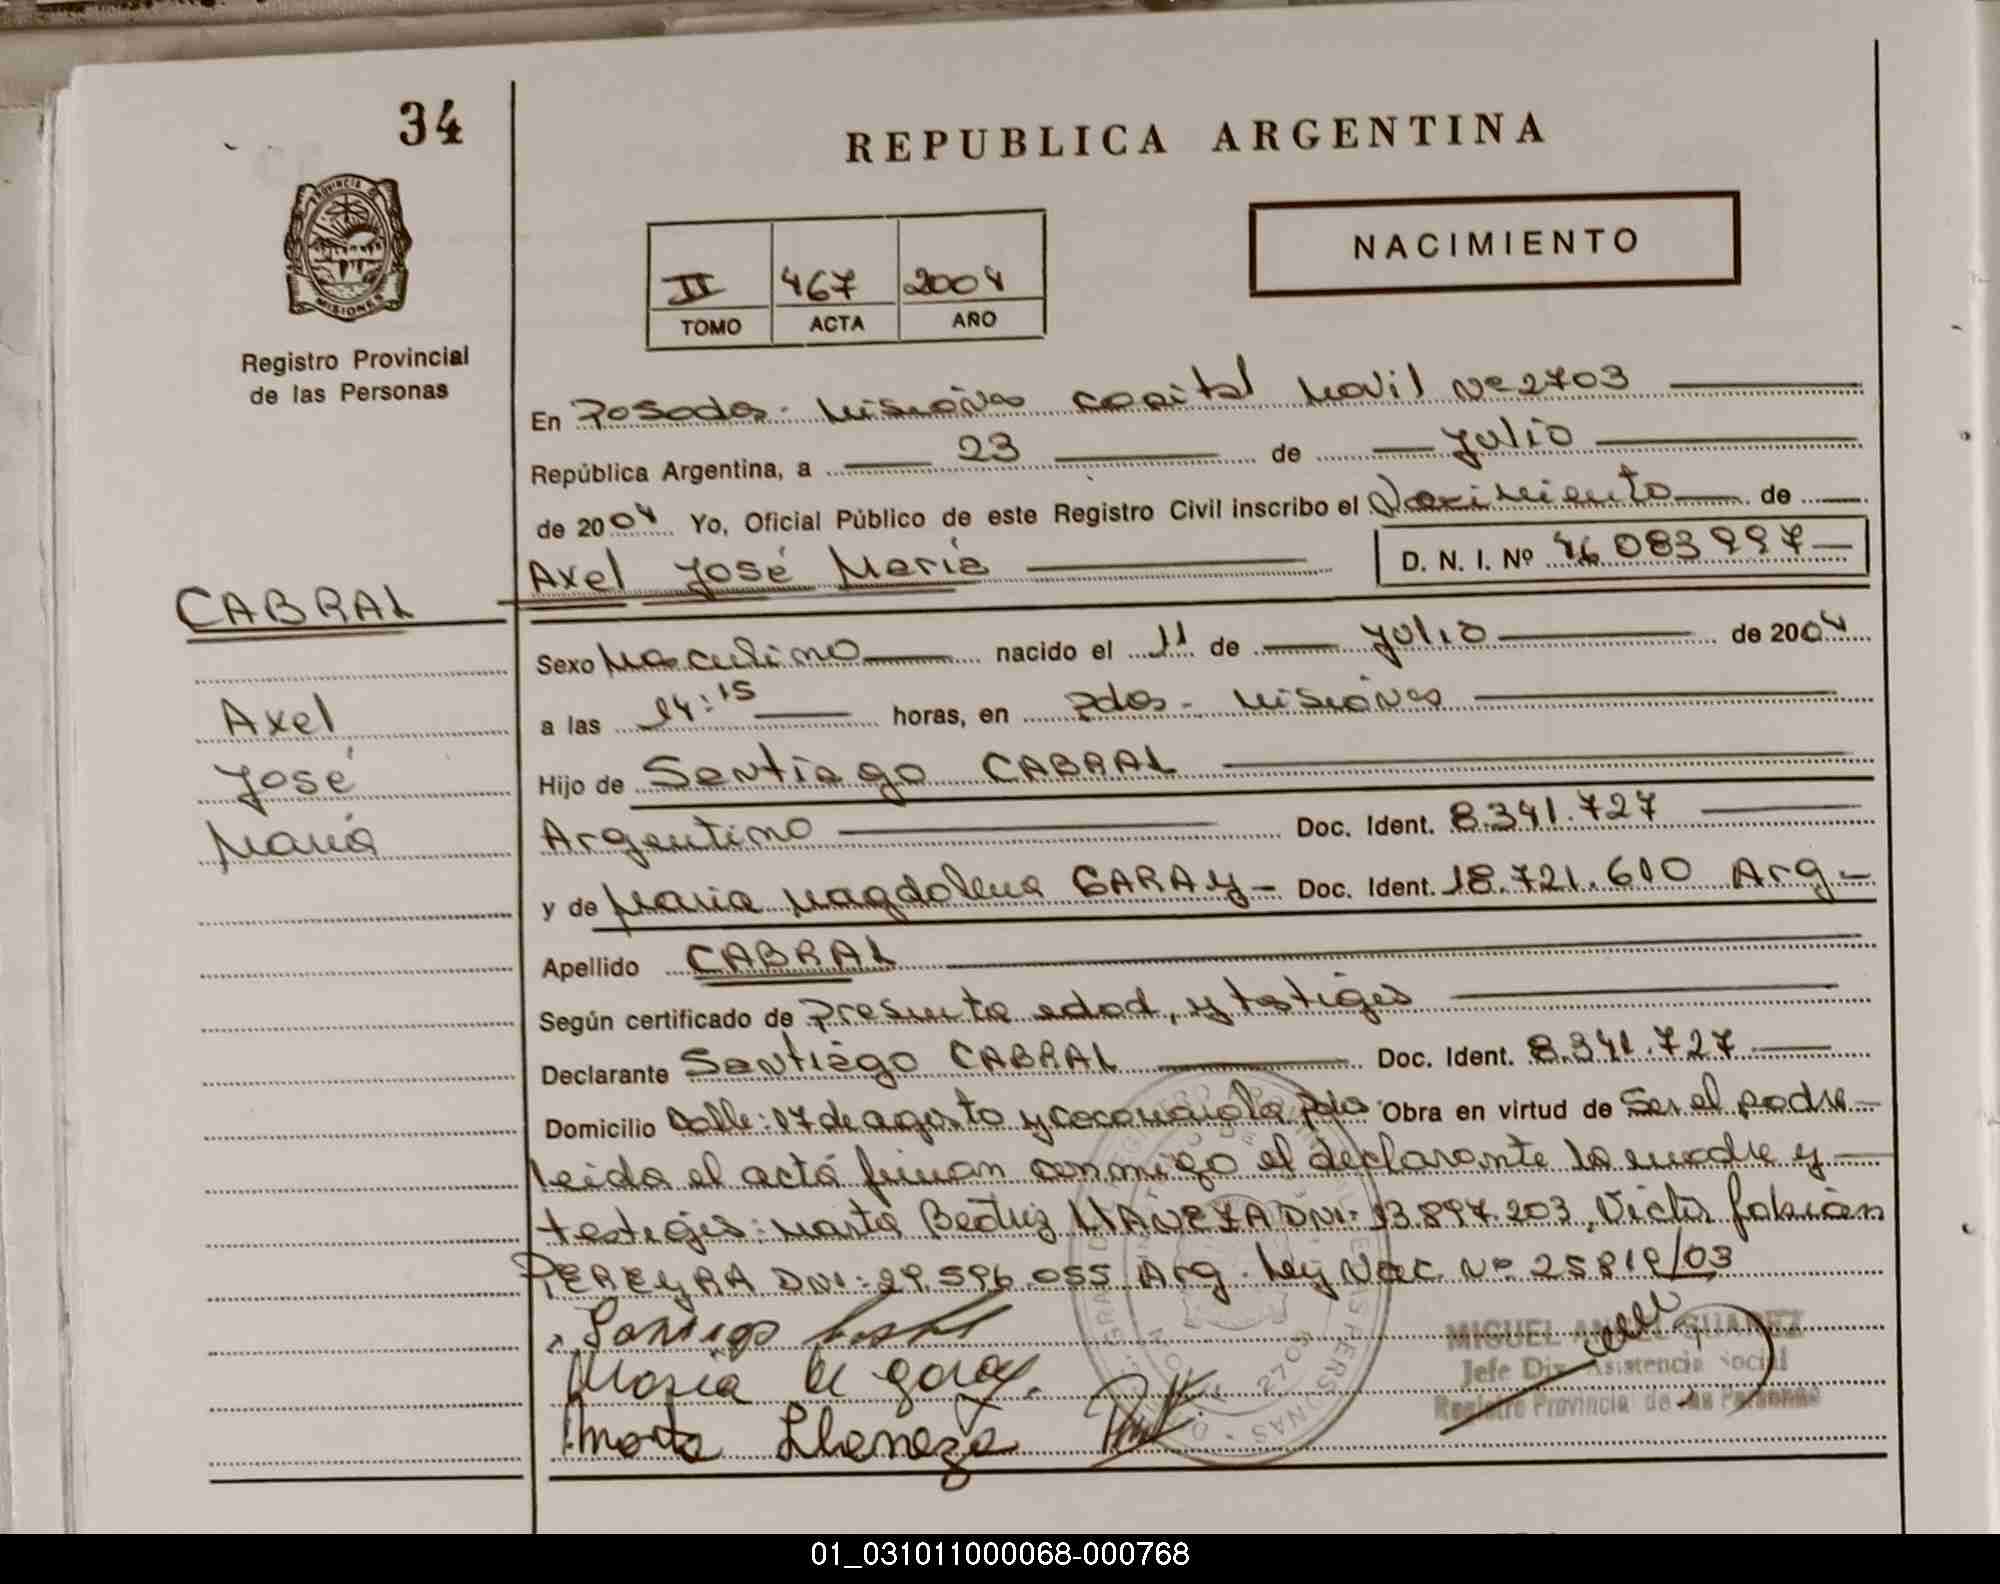 34
REPUBLICA ARGENTINA
PROVINCIA DE
MISIONES
Registro Provincial
de las Personas
NACIMIENTO
II 467 2004
TOMO ACTA AÑO
En Posadas - Misiones capital Movil Nº 2703
República Argentina, a 23 de Julio
de 2004 Yo, Oficial Público de este Registro Civil inscribo el Nacimiento de
Axel José María D. N. I. Nº 46.083.997
CABRAL
Axel
José
María
Sexo Masculino nacido el 11 de Julio de 2004
a las 14:15 horas, en Pdas - Misiones
Hijo de Santiago CABRAL
Argentino Doc. Ident. 8.341.727
y de Maria Magdalena GARAY - Doc. Ident. 18.721.610 Arg -
Apellido CABRAL
Según certificado de Presunta edad, y testigos
Declarante Santiago CABRAL Doc. Ident. 8.341.727
Domicilio Calle: 17 de agosto y Pdas Obra en virtud de Ser el padre -
leida el acta firman conmigo el declarante la madre y -
testigos: Marta Beatriz LLAÑEZA DNI: 13.897.203, Victor fabian
PEREYRA DNI: 29.596.055 Arg. Ley Nac. Nº 25819/03
Santiago
Maria M garay.
Marta Llaneza
MIGUEL ANGEL SUAREZ
Jefe Div. Asistencia Social
Registro Provincial de las Personas
01_031011000068-000768